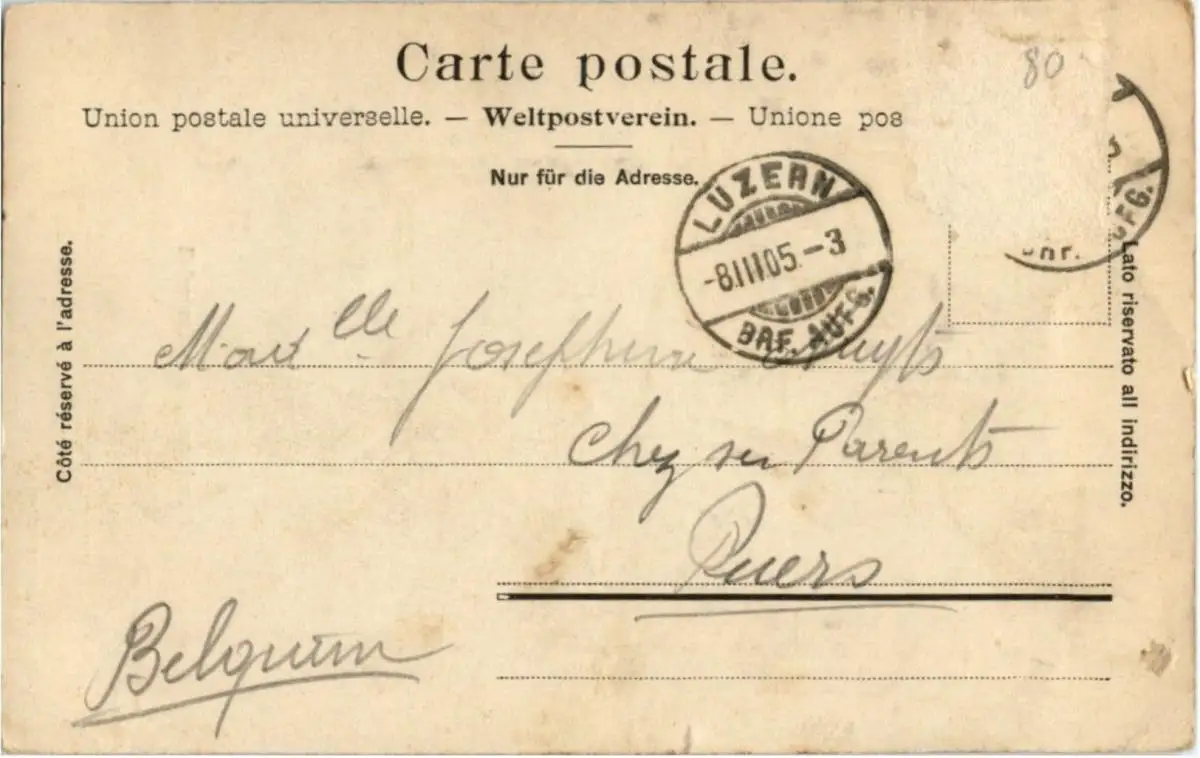 Carte postale.
80
Union postale universelle. — Weltpostverein. — Unione pos
Nur für die Adresse.
LUZERN
-8.III.05.-3
BRF. AUFG.
UFG.
Côté réservé à l'adresse.
Lato riservato all indirizzo.
Josephine
Chez ses Parents
Puers
Belgium